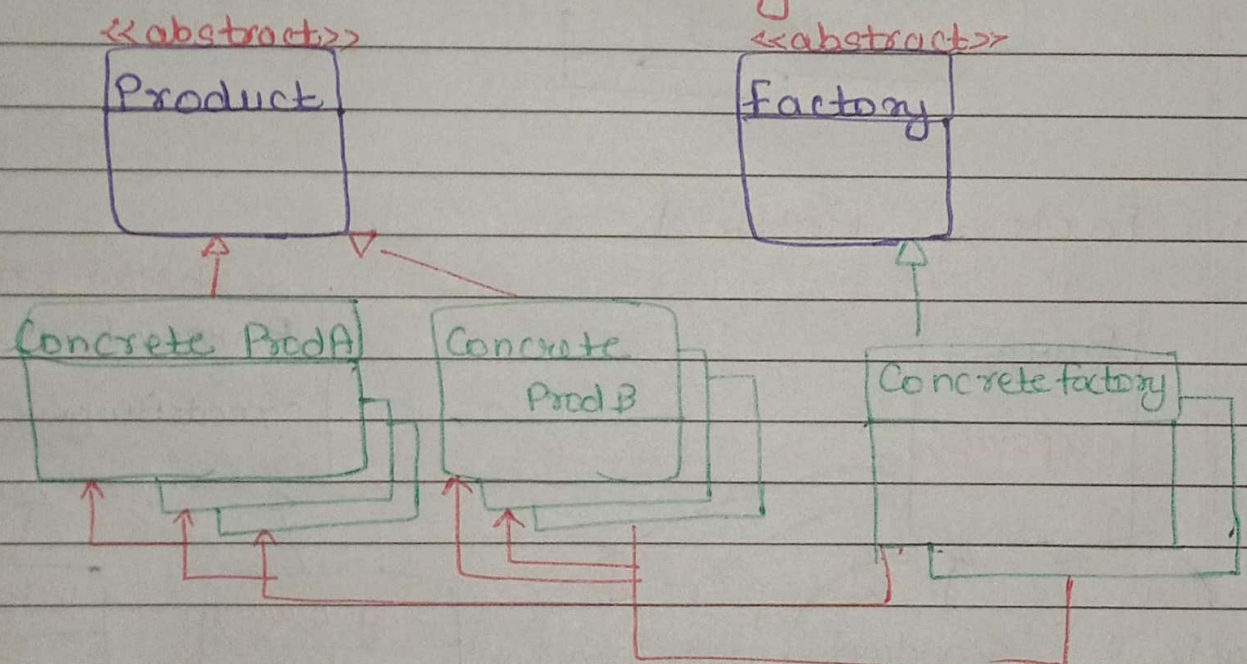 <<abstract>>
Product
<<abstract>>
factory
Concrete ProdA
Concrete
Prod B
Concrete factory